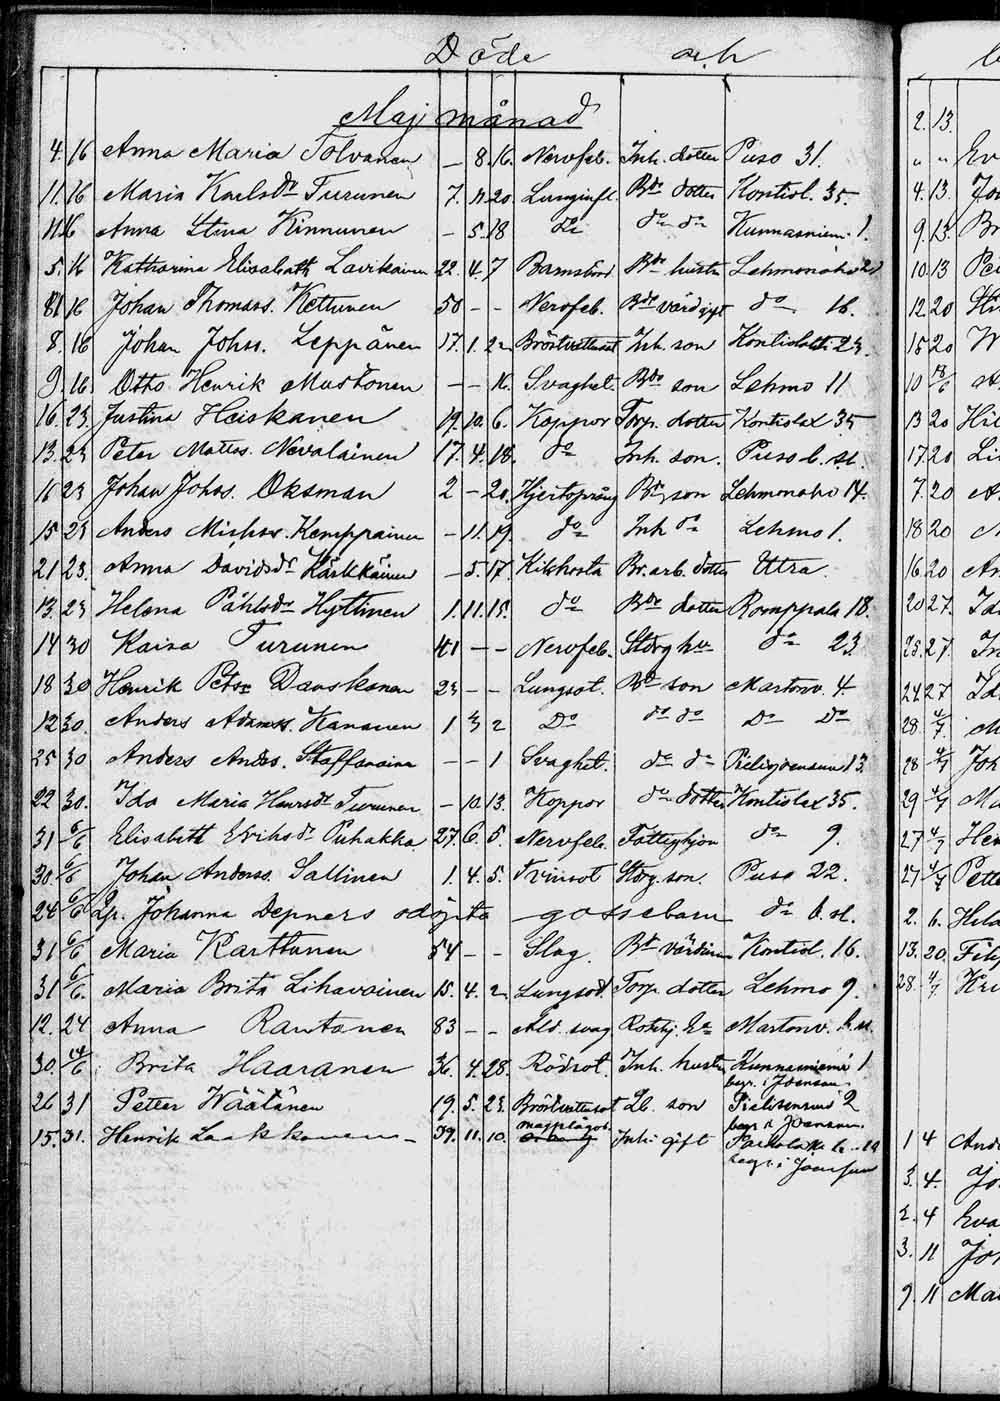 Döde och
Maj månad
4. 16 Anna Maria Tolvanen — 8. 16. Nervfeb. Inh. dotter Puso 31.
11. 16 Maria Karlsdr Turunen 7. 11. 20. Lunginfl. Bde dotter Kontiol. 35.
11. 16 Anna Stina Kinnunen — 5. 18 do do do Kunnasniemi 1.
5. 16 Katharina Elisabeth Lavikainen 22. 4. 7 Barnsbörd. Bde hustru Lehmonaho 21
8. 16 Johan Thomass. Kettunen 50 — — Nervfeb. Bde värd gift do 16.
8. 16 Johan Johss. Leppänen 17. 1. 2 Bröstvattusot Inh. son Kontiolaks 23.
9. 16. Otto Henrik Mustonen — — 16. Svaghet. Bde son Lehmo 11
16. 23. Justina Heiskanen 19. 10. 6. Koppor Torp. dotter Kontiolax 35
13. 23 Peter Mattss. Nevalainen 17. 4. 18. do Inh. son. Puso b. st.
16 23 Johan Johss. Oksman 2 — 20. Hjertsprång Bde son Lehmonaho 14.
15. 23 Anders Michss. Kemppainen — 11. 19. do Inh do Lehmo 1.
21 23. Anna Davidsdr Kärkkäinen — 5. 17. Kikhosta Br. arb. dotter Utra.
13. 23 Helena Påhlsdr Hyttinen 1. 11. 15. do Bde dotter Romppala 18.
14 30 Kaisa Turunen 41 — — Nervfeb. Storg hu do 23
18 30 Henrik Petss. Danskanen 23 — — Lungsot. Bde son Martonv. 4.
12 30. Anders Adamss. Kananen 1 3 2 Do do do Do Do
25 30 Anders Andss. Staffanainen — — 1 Svaghet. do do Pielisjoensuu 13.
22 30. Ida Maria Henrsdr Turunen — 10. 13. Koppor do dotter Kontiolax 35.
31 6/6 Elisabeth Eriksdr Puhakka 27. 6. 5. Nervfeb. Fattighjon do 9.
30. 6/6 Johan Anderss. Sallinen 1. 4. 5. Tvinsot Storg. son. Puso 22.
24 6/6 Lp. Johanna Depners odöpta — gossebarn do b. st.
31 6/6 Maria Karttunen 54 — — Slag. Bde värdinna Kontiol. 16.
31 6/6. Maria Brita Lihavainen 15. 4. 2 Lungsot. Torp. dotter Lehmo 9.
12. 24 Anna Rautanen 83 — — Ald. svag Rotehj. Ea Martonv. b. st.
30. 14/6 Brita Haaranen 36. 4. 28. Rödsot. Inh. hustru Kunnasniemi 1
begr. i Joensuu.
26 31 Petter Wäätänen 19. 5. 23. Bröstvattusot Lb. son Pielisensuu 2
begr. i Joensuu.
15. 31. Henrik Laakkonen — 39. 11. 10. magplågor. Inh. gift
begr. i Joensuu
2. 13.
" " Ev
4. 13. Joh
9. 13. Br
10. 13 Pet
12 20
15 20
10 13/6
13 20 Hil
17. 20 Li
7. 20 A
18 20
16. 20 An
20 27. Ida
25. 27.
24 27 Ida
28. 4/7. M
28 4/7 Joh
29 4/7 Ma
27 4/7 Hen
27 4/7 Pette
2. 6. Hild
13. 20. Filip
28. 4/7 Kri
1 4 Ande
3. 4. Jo
2. 4 Eva
3. 11 Joh
9. 11 Mar